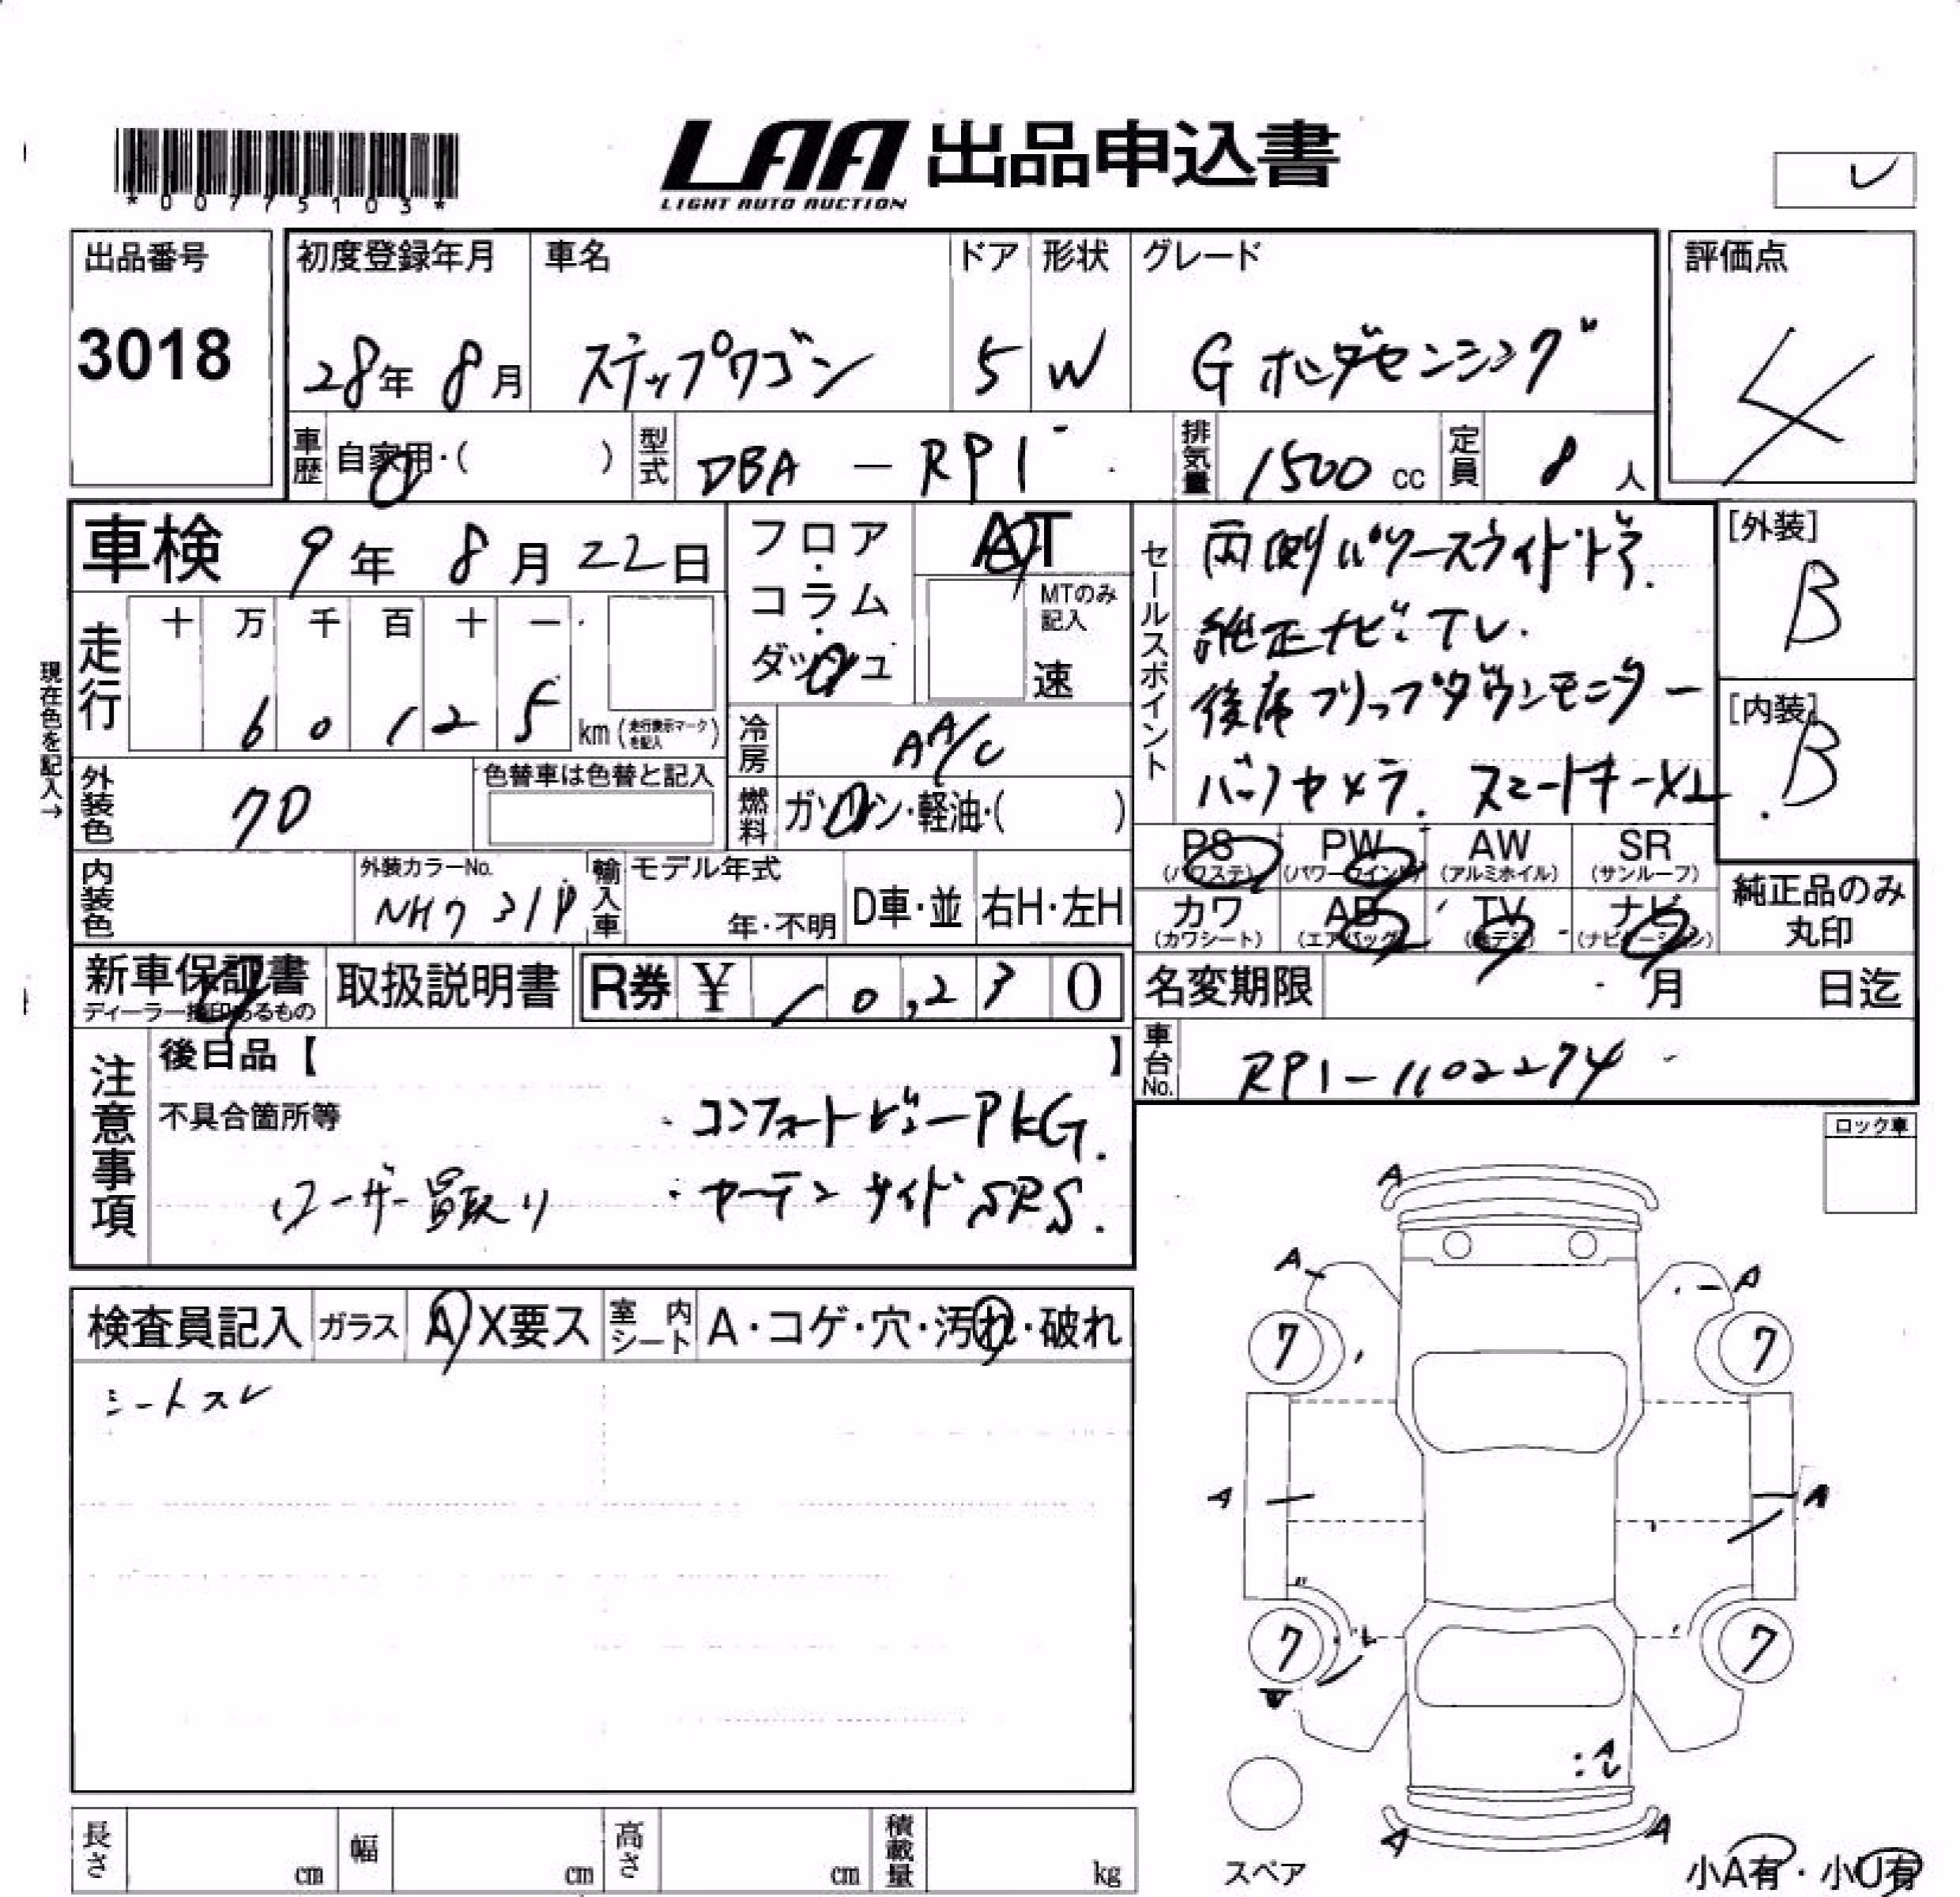 *00775103*
LAA 出品申込書
LIGHT AUTO AUCTION
レ
出品番号
3018
初度登録年月
28年 8月
車名
ステップワゴン
ドア
5
形状
W
グレード
G ホンダセンシング
評価点
4
車歴
自家用・( )
型式
DBA - RP1
排気量
1500 cc
定員
8 人
車検 9年 8月 22日
走行
十 万 千 百 十 一
6 0 1 2 5
km (走行表示マークを記入)
現在色を記入→
フロア・コラム・ダッシュ
AT
MTのみ記入
速
冷房
AA/C
燃料
ガソリン・軽油・( )
セールスポイント
両側パワースライドドア.
純正ナビ・TV.
後席フリップダウンモニター
バックカメラ. スマートキー×2
[外装]
B
[内装]
B
外装色
クロ
色替車は色替と記入
内装色
外装カラーNo.
NH731P
輸入車
モデル年式
年・不明
D車・並
右H・左H
PS
(パワステ)
PW
(パワーウインド)
AW
(アルミホイル)
SR
(サンルーフ)
カワ
(カワシート)
AB
(エアバッグ)
TV
(地デジ)
ナビ
(ナビゲーション)
純正品のみ
丸印
新車保証書
ディーラー捺印あるもの
取扱説明書
R券 ¥ 10,230
名変期限 月 日迄
車台No.
RP1-1102274
注意事項
後日品【 】
不具合箇所等
・コンフォートビューPKG.
ユーザー買取り
・カーテンサイドSRS.
ロック車
検査員記入
ガラス
A X要ス
室内シート
A・コゲ・穴・汚れ・破れ
シートスレ
A
A
A
7
7
A
A
7
7
A
A
A
スペア
小A有・小U有
長さ
cm
幅
cm
高さ
cm
積載量
kg